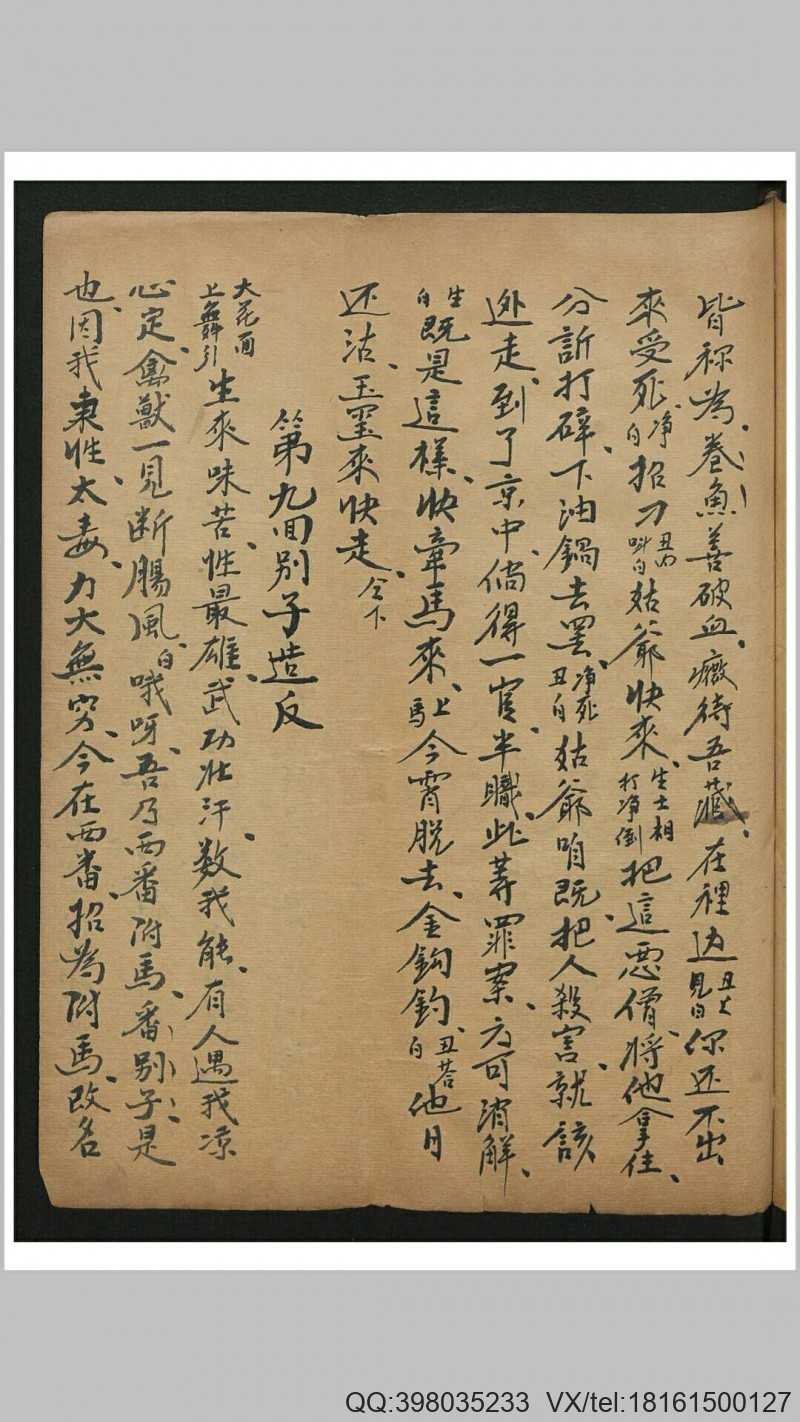 皆称為卷魚善破血癥待吾藏在裡边丑上見白你还不出
來受死净白招刀丑内叫白姑爺快來生士相打净倒把這惡僧將他拿住
分訴打碎下油鍋去罢净死丑白姑爺咱既把人殺害就該
逃走到了京中倘得一官半職此等罪案方可消解
生白既是這樣快牽馬來上馬今霄脱去金鈎钓丑答白他日
还沽玉垩來快走仝下
第九回别子造反
大花面上舞引生來味苦性最雄武功壮汗数我能有人遇我凉
心定禽獸一見断腸風白哦呀吾乃西番附馬番别子是
也因我秉性太毒力大無穷今在西番招為附馬改名
QQ:398035233 VX/tel:18161500127